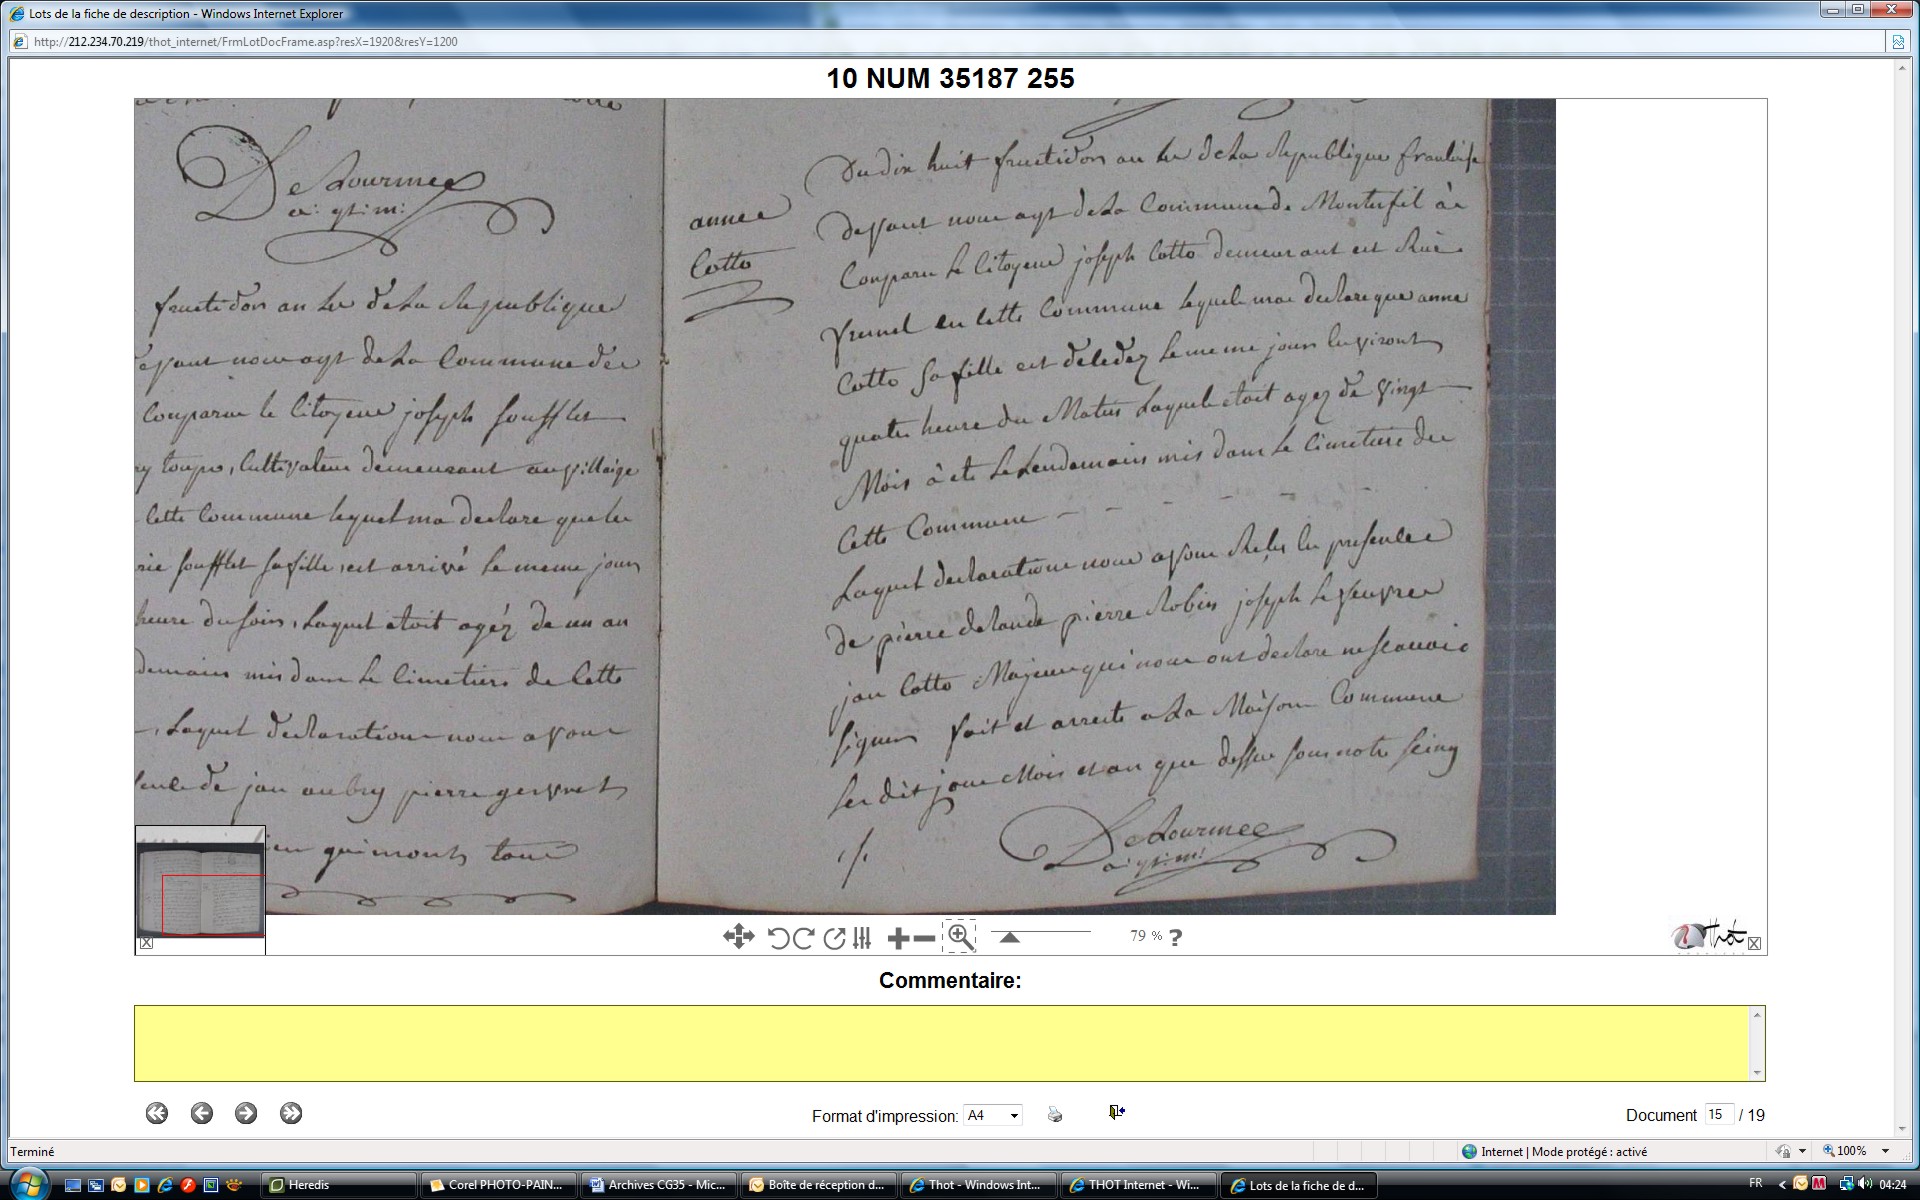 Lots de la fiche de description - Windows Internet Explorer
http://212.234.70.219/thot_internet/FrmLotDocFrame.asp?resX=1920&resY=1200
10 NUM 35187 255
Delourmee
a: gt: m:
fructidor an 1er de la Republique
devant nous agt de la Commune de
Comparu le Citoyene joseph soufflet
cultivateur demeurant au village
Cette Commune lequel ma declare que
soufflet sa fille est arrivé le meme jour
heure du soir, Laquel etoit agéz de un an
demain mis dans le Cimetiere de Cette
, Laquel declaratione nous avons
de jan aubry pierre
annee
Cotto
Du dix huit fructidor an 1er de la Republique francoise
devant nous agt de la Commune de Monterfil àe
Comparu le Citoyene joseph Cotto demeurant
en Cette Commune lequele mae declare que anne
Cotto sa fille est deledez le meme jour environt
quatre heure du Matin Laquele etoit agez de vingt
Mois à ete le Lendemain mis dans le Cimetiere de
Cette Commune
Laquel declaratione nous avons Relu en presence
de pierre delande pierre Robin joseph le veuvre
jan Cotto Majeur qui nous ont declare ne scauoir
signer fait et arrete a La Maison Commune
Les dit jour Mois et an que dessus sous notre seing
Delourmee
a: gt: m:
79 % ?
Thot
Commentaire:
Format d'impression: A4
Document 15 / 19
Terminé
Internet | Mode protégé : activé
100%
Heredis
Corel PHOTO-PAIN...
Archives CG35 - Mic...
Boîte de réception d...
Thot - Windows Int...
THOT Internet - Wi...
Lots de la fiche de d...
FR
04:24